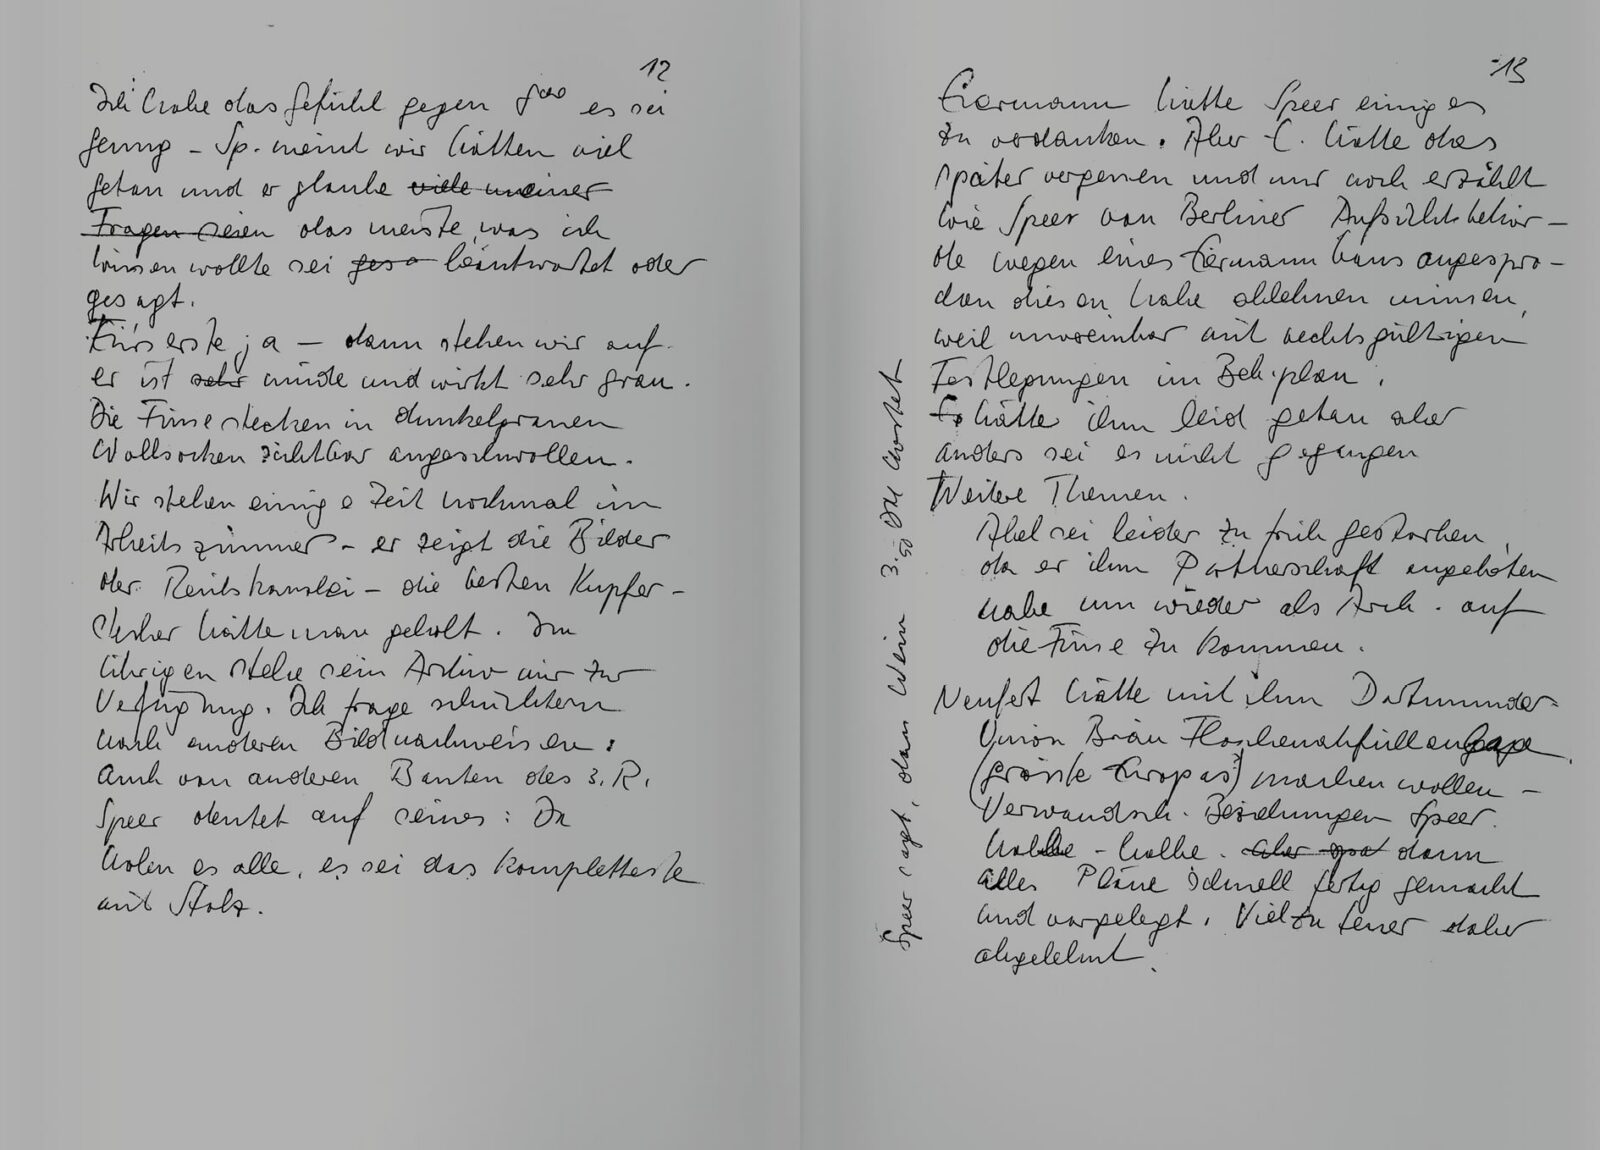 12
Ich habe das Gefühl gegen 5⁰⁰ es sei
genug – Sp. meint wir hätten viel
getan und er glaube viele meiner
Fragen seien das meiste, was ich
wissen wollte sei beantwortet oder
gesagt.
Fürs erste ja – dann stehen wir auf.
er ist sehr müde und wirkt sehr grau.
Die Füsse stecken in dunkelgrauen
Wollsocken sichtbar angeschwollen.
Wir stehen einige Zeit nochmal im
Arbeitszimmer – er zeigt die Bilder
der Reichskanzlei – die besten Kupfer-
stecher hätte man geholt. Im
übrigen stehe sein Archiv mir zur
Verfügung. Ich frage schüchtern
nach anderen Bildnachweisen:
Auch von anderen Bauten des 3. R.
Speer deutet auf seines: Da
haben es alle, es sei das kompletteste
mit Stolz.
13
Eiermann hätte Speer einiges
zu verdanken. Aber E. hätte das
später vergessen und nur noch erzählt
wie Speer von Berliner Aufsichtsbehör-
de wegen eines Eiermann baus angespro-
den diesen habe ablehnen müssen,
weil unvereinbar mit rechtsgültigen
Festlegungen im Beb.plan.
Es hätte ihm leid getan aber
anders sei es nicht gegangen
Weitere Themen.
Abel sei leider zu früh gestorben,
da er ihm Partnerschaft angeboten
habe um wieder als Arch. auf
die Füsse zu kommen.
Neufert hätte mit ihm Dortmunder-
Union Bräu Flaschenabfüllanlage
(grösste Europas) machen wollen –
Verwandsch. Beziehungen Speer.
halbe – halbe. aber dann
alles Pläne schnell fertig gemacht
und vorgelegt. Viel zu teuer daher
abgelehnt.
Speer sagt, dan Wein 3.50 DM kostet